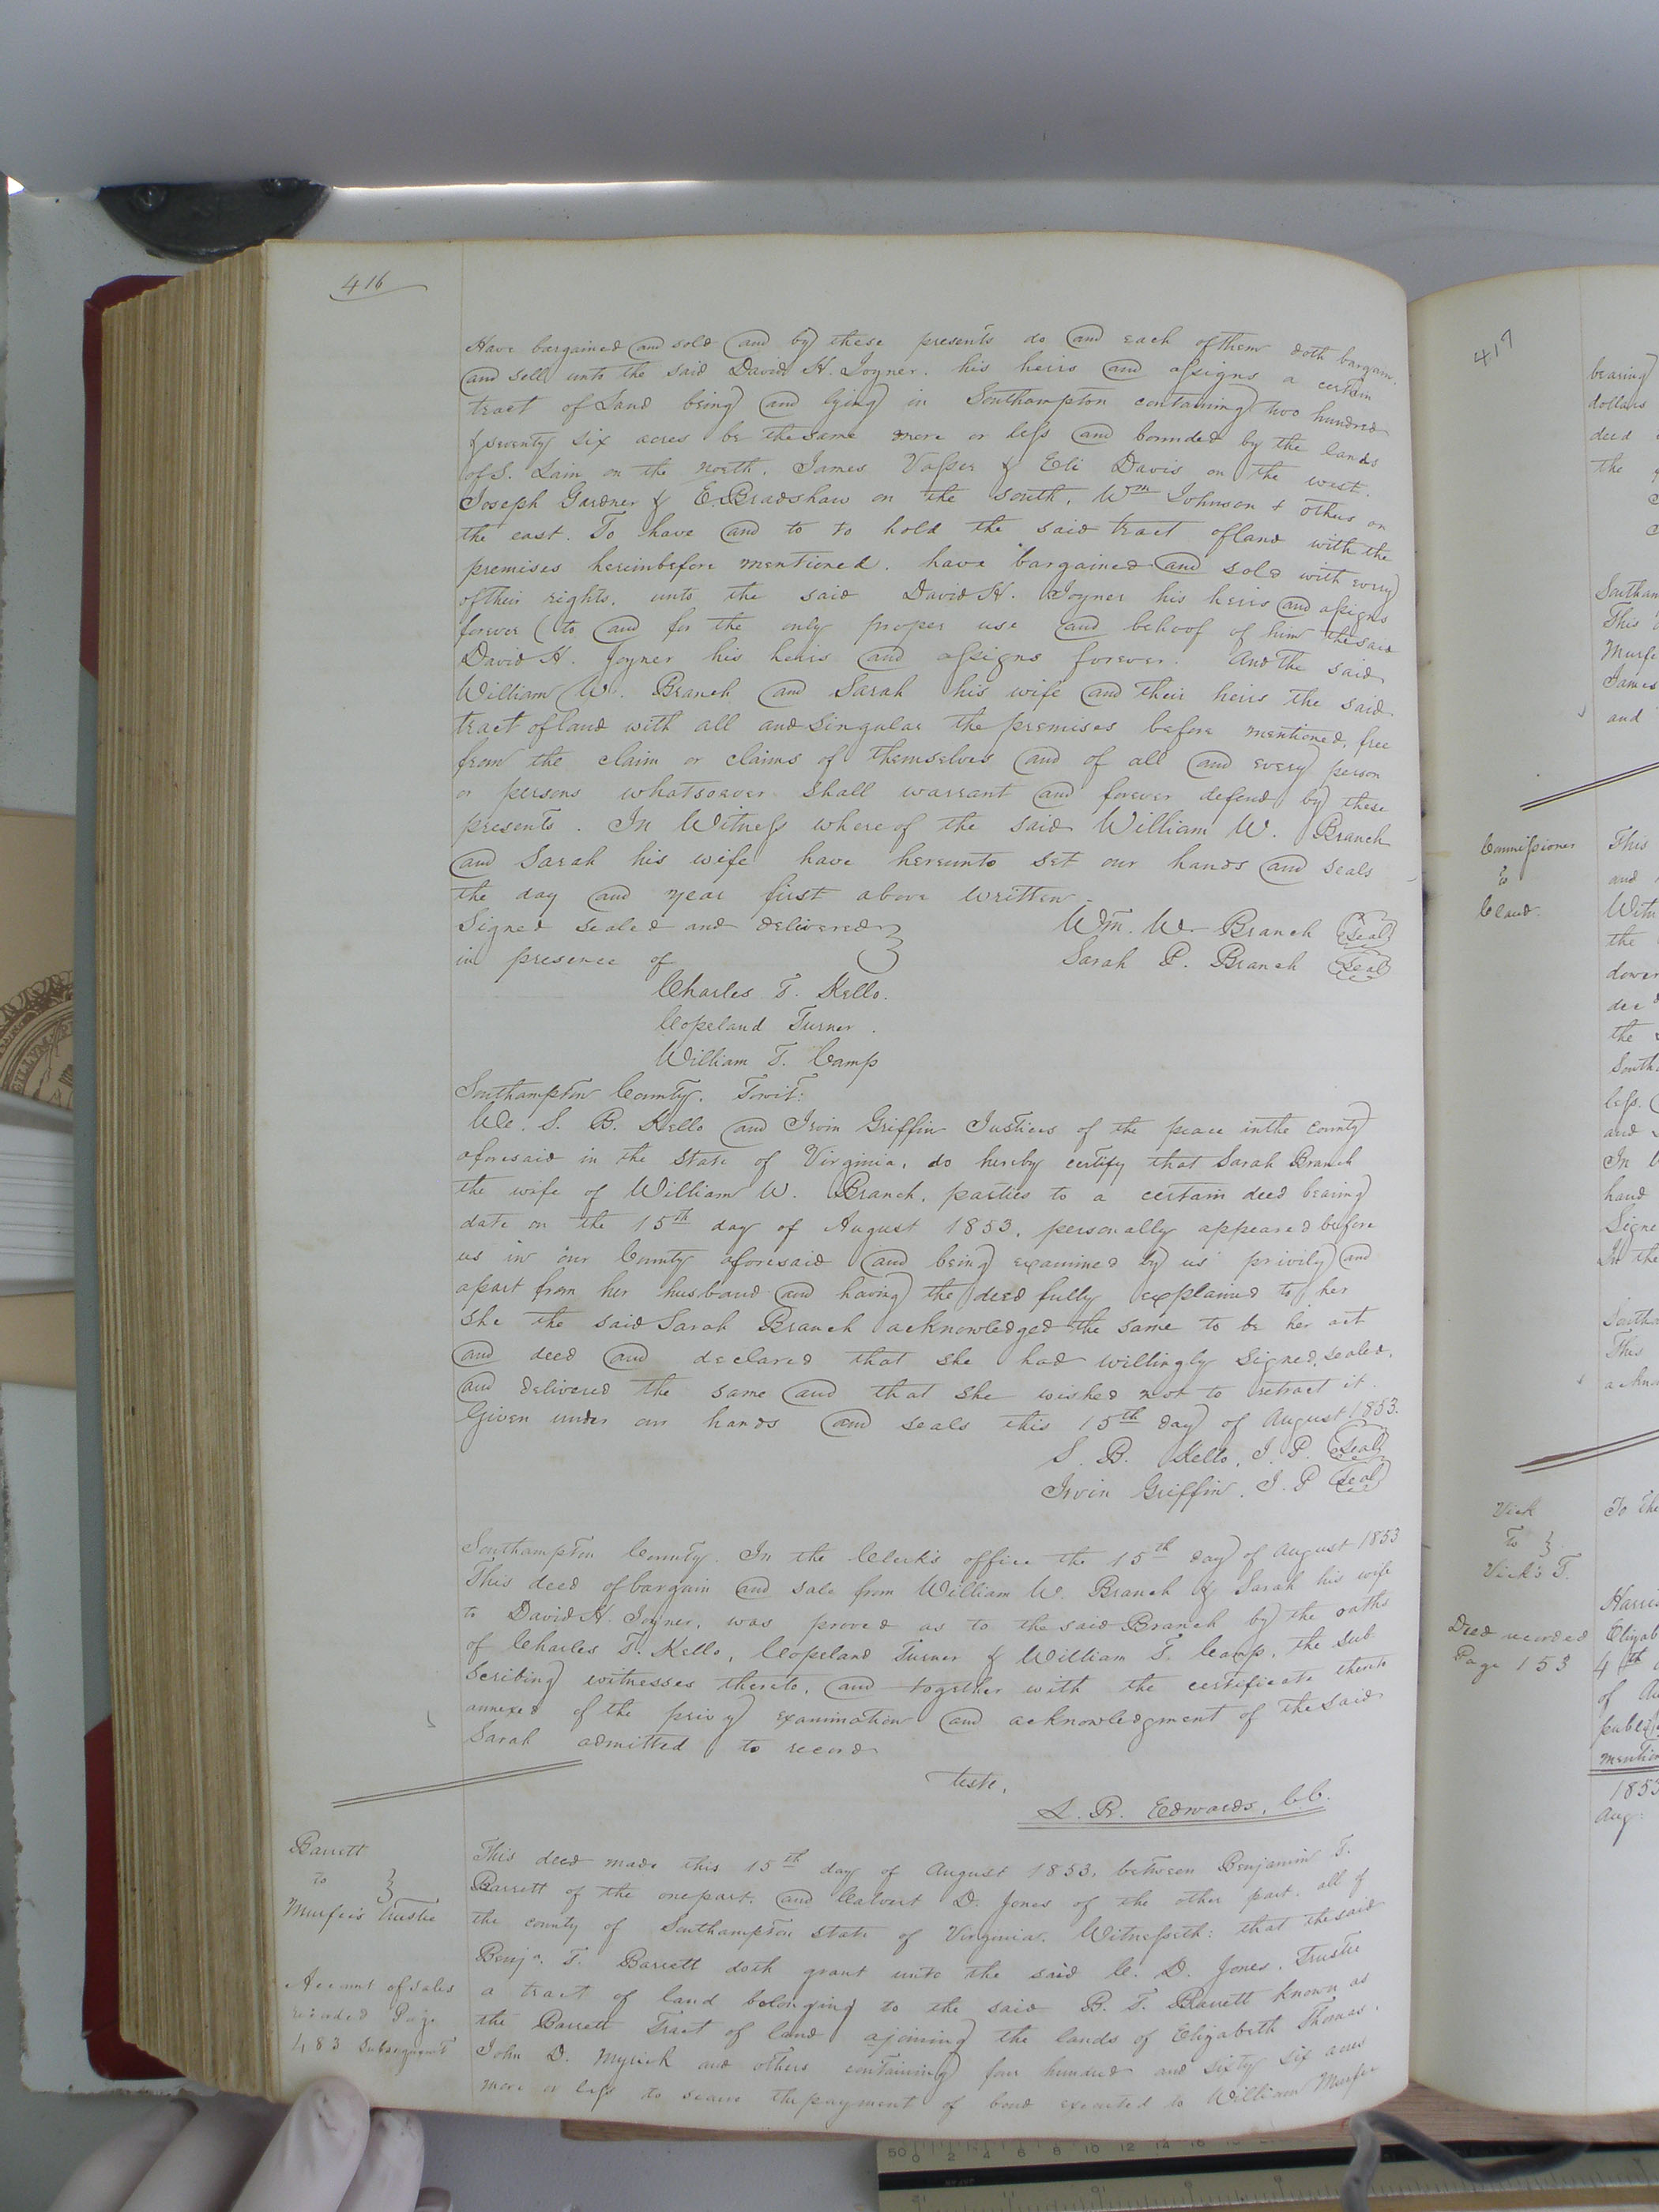 416
Have bargained and sold and by these presents do and each of them doth bargain
and sell unto the said David H. Joyner. his heirs and assigns a certain
tract of Land being and lying in Southampton containing two hundred
& seventy six acres be the same more or less and bounded by the lands
of S. Lain on the north, James Vasser & Eli Davis on the west.
Joseph Gardner & E. Bradshaw on the south, Wm Johnson & others on
the east. To have and to to hold the said tract of land with the
premises hereinbefore mentioned. have bargained and sold with every
of their rights, unto the said David H. Joyner his heirs and assigns
forever (to and for the only proper use and behoof of him the said
David H. Joyner his heirs and assigns forever. And the said
William W. Branch and Sarah his wife and their heirs the said
tract of land with all and singular the premises before mentioned, free
from the claim or claims of themselves and of all and every person
or persons whatsoever shall warrant and forever defend by these
presents. In Witness whereof the said William W. Branch
and Sarah his wife have hereunto set our hands and seals
the day and year first above written.
Signed sealed and delivered Wm. W. Branch Seal
in presence of Sarah P. Branch Seal
Charles T. Kello.
Copeland Turner.
William T. Camp
Southampton County. Towit:
We. S. B. Kello and Irvin Griffin Justices of the peace in the county
aforesaid in the State of Virginia, do hereby certify that Sarah Branch
the wife of William W. Branch, parties to a certain deed bearing
date on the 15th day of August 1853, personally appeared before
us in our County aforesaid and being examined by us privily and
apart from her husband and having the deed fully explained to her
she the said Sarah Branch acknowledged the same to be her act
and deed and declared that she had willingly signed, sealed,
and delivered the same and that she wished not to retract it.
Given under our hands and seals this 15th day of August 1853.
S. B. Kello, J. P. Seal
Irvin Griffin. J. P Seal
Southampton County. In the Clerk's office the 15th day of August 1853
This deed of bargain and sale from William W. Branch & Sarah his wife
to David H. Joyner, was proved as to the said Branch by the oaths
of Charles T. Kello, Copeland Turner & William T. Camp, the sub
scribing witnesses thereto, and together with the certificate thereto
annexed of the privy examination and acknowledgment of the said
Sarah admitted to record
Teste,
L. R. Edwards, C.C.
Barrett
to
Murfee's Trustee
Account of sales
recorded Page
483 Subsequent
This deed made this 15th day of August 1853, between Benjamin T.
Barrett of the one part, and Calvert D. Jones of the other part. all of
the county of Southampton state of Virginia. Witnesseth: that the said
Benja. T. Barrett doth grant unto the said C. D. Jones. Trustee
a tract of land belonging to the said B. T. Barrett known as
the Barrett Tract of land ajoining the lands of Elizabeth Thomas.
John D. Myrick and others containing four hundred and sixty six acres
more or less to secure the payment of bond executed to William Murfee
417
bearing
dollars
deed
the
Southam
This
Murfe
James
and
Commissioner
to
Claud.
This
and
Witn
the
dower
deed
the
South
less.
and
In
hand
Signe
In the
Southa
This
ackno
Vick
to
Vick's T.
Deed recorded
Page 153
To the
Harri
Elizab
4th
of Au
public
mention
1853
Aug.
50 0 2 4 6 8 10 12 14 16